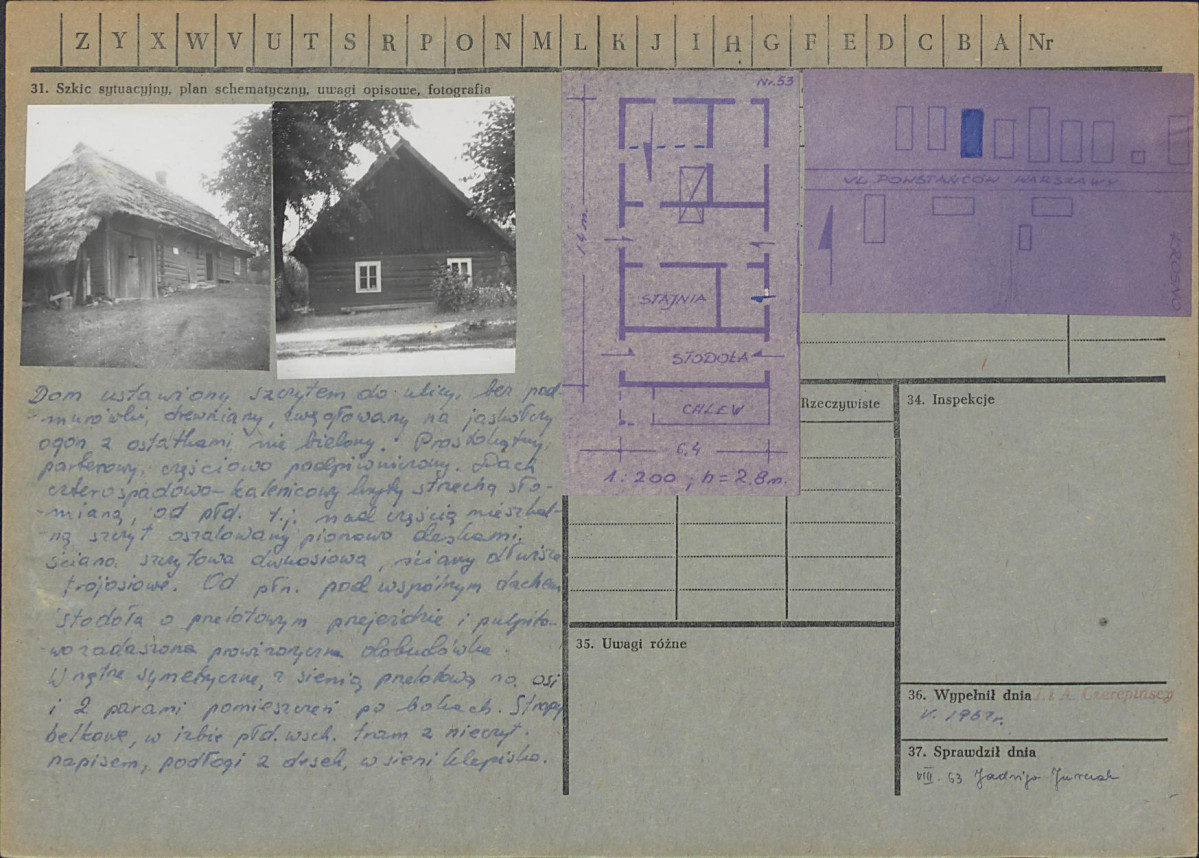 Z Y X W V U T S R P O N M L K J I H G F E D C B A Nr
31. Szkic sytuacyjny, plan schematyczny, uwagi opisowe, fotografia
Dom ustawiony szczytem do ulicy, bez pod-
-murówki, drewniany, zwęgłowany na jaskółczy
ogon z ostatkami, nie bielony. Prostokątny,
parterowy, częściowo podpiwniczony. Dach
czterospadowo-kalenicowy kryty strzechą sło-
-mianą, od płd. t.j. nad częścią mieszkal-
-ną szczyt oszalowany pionowo deskami.
ściana szczytowa dwuosiowa, ściany dłuższe
trójosiowe. Od płn. pod wspólnym dachem
stodoła o przelotowym przejeździe i pulpito-
-wo zadaszona prowizoryczna dobudówka.
Wnętrze symetryczne, z sienią przelotową na osi
i 2 parami pomieszczeń po bokach. Stropy
belkowe, w izbie płd. wsch. tram z nieczyt.
napisem, podłogi z desek, w sieni klepisko.
Nr. 53
14 m.
STAJNIA
STODOŁA
CHLEW
6,4
1:200 ; h = 2.8 m.
UL. POWSTAŃCÓW WARSZAWY
KROSNO
Rzeczywiste
34. Inspekcje
35. Uwagi różne
36. Wypełnił dnia J. i A. Czerepińscy
V. 1967 r.
37. Sprawdził dnia
VIII. 63 Jadwiga